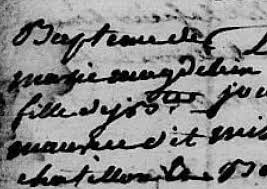 Bapteme de
marie magdelein
fille de jos
maurice dit mis
chatillon le B